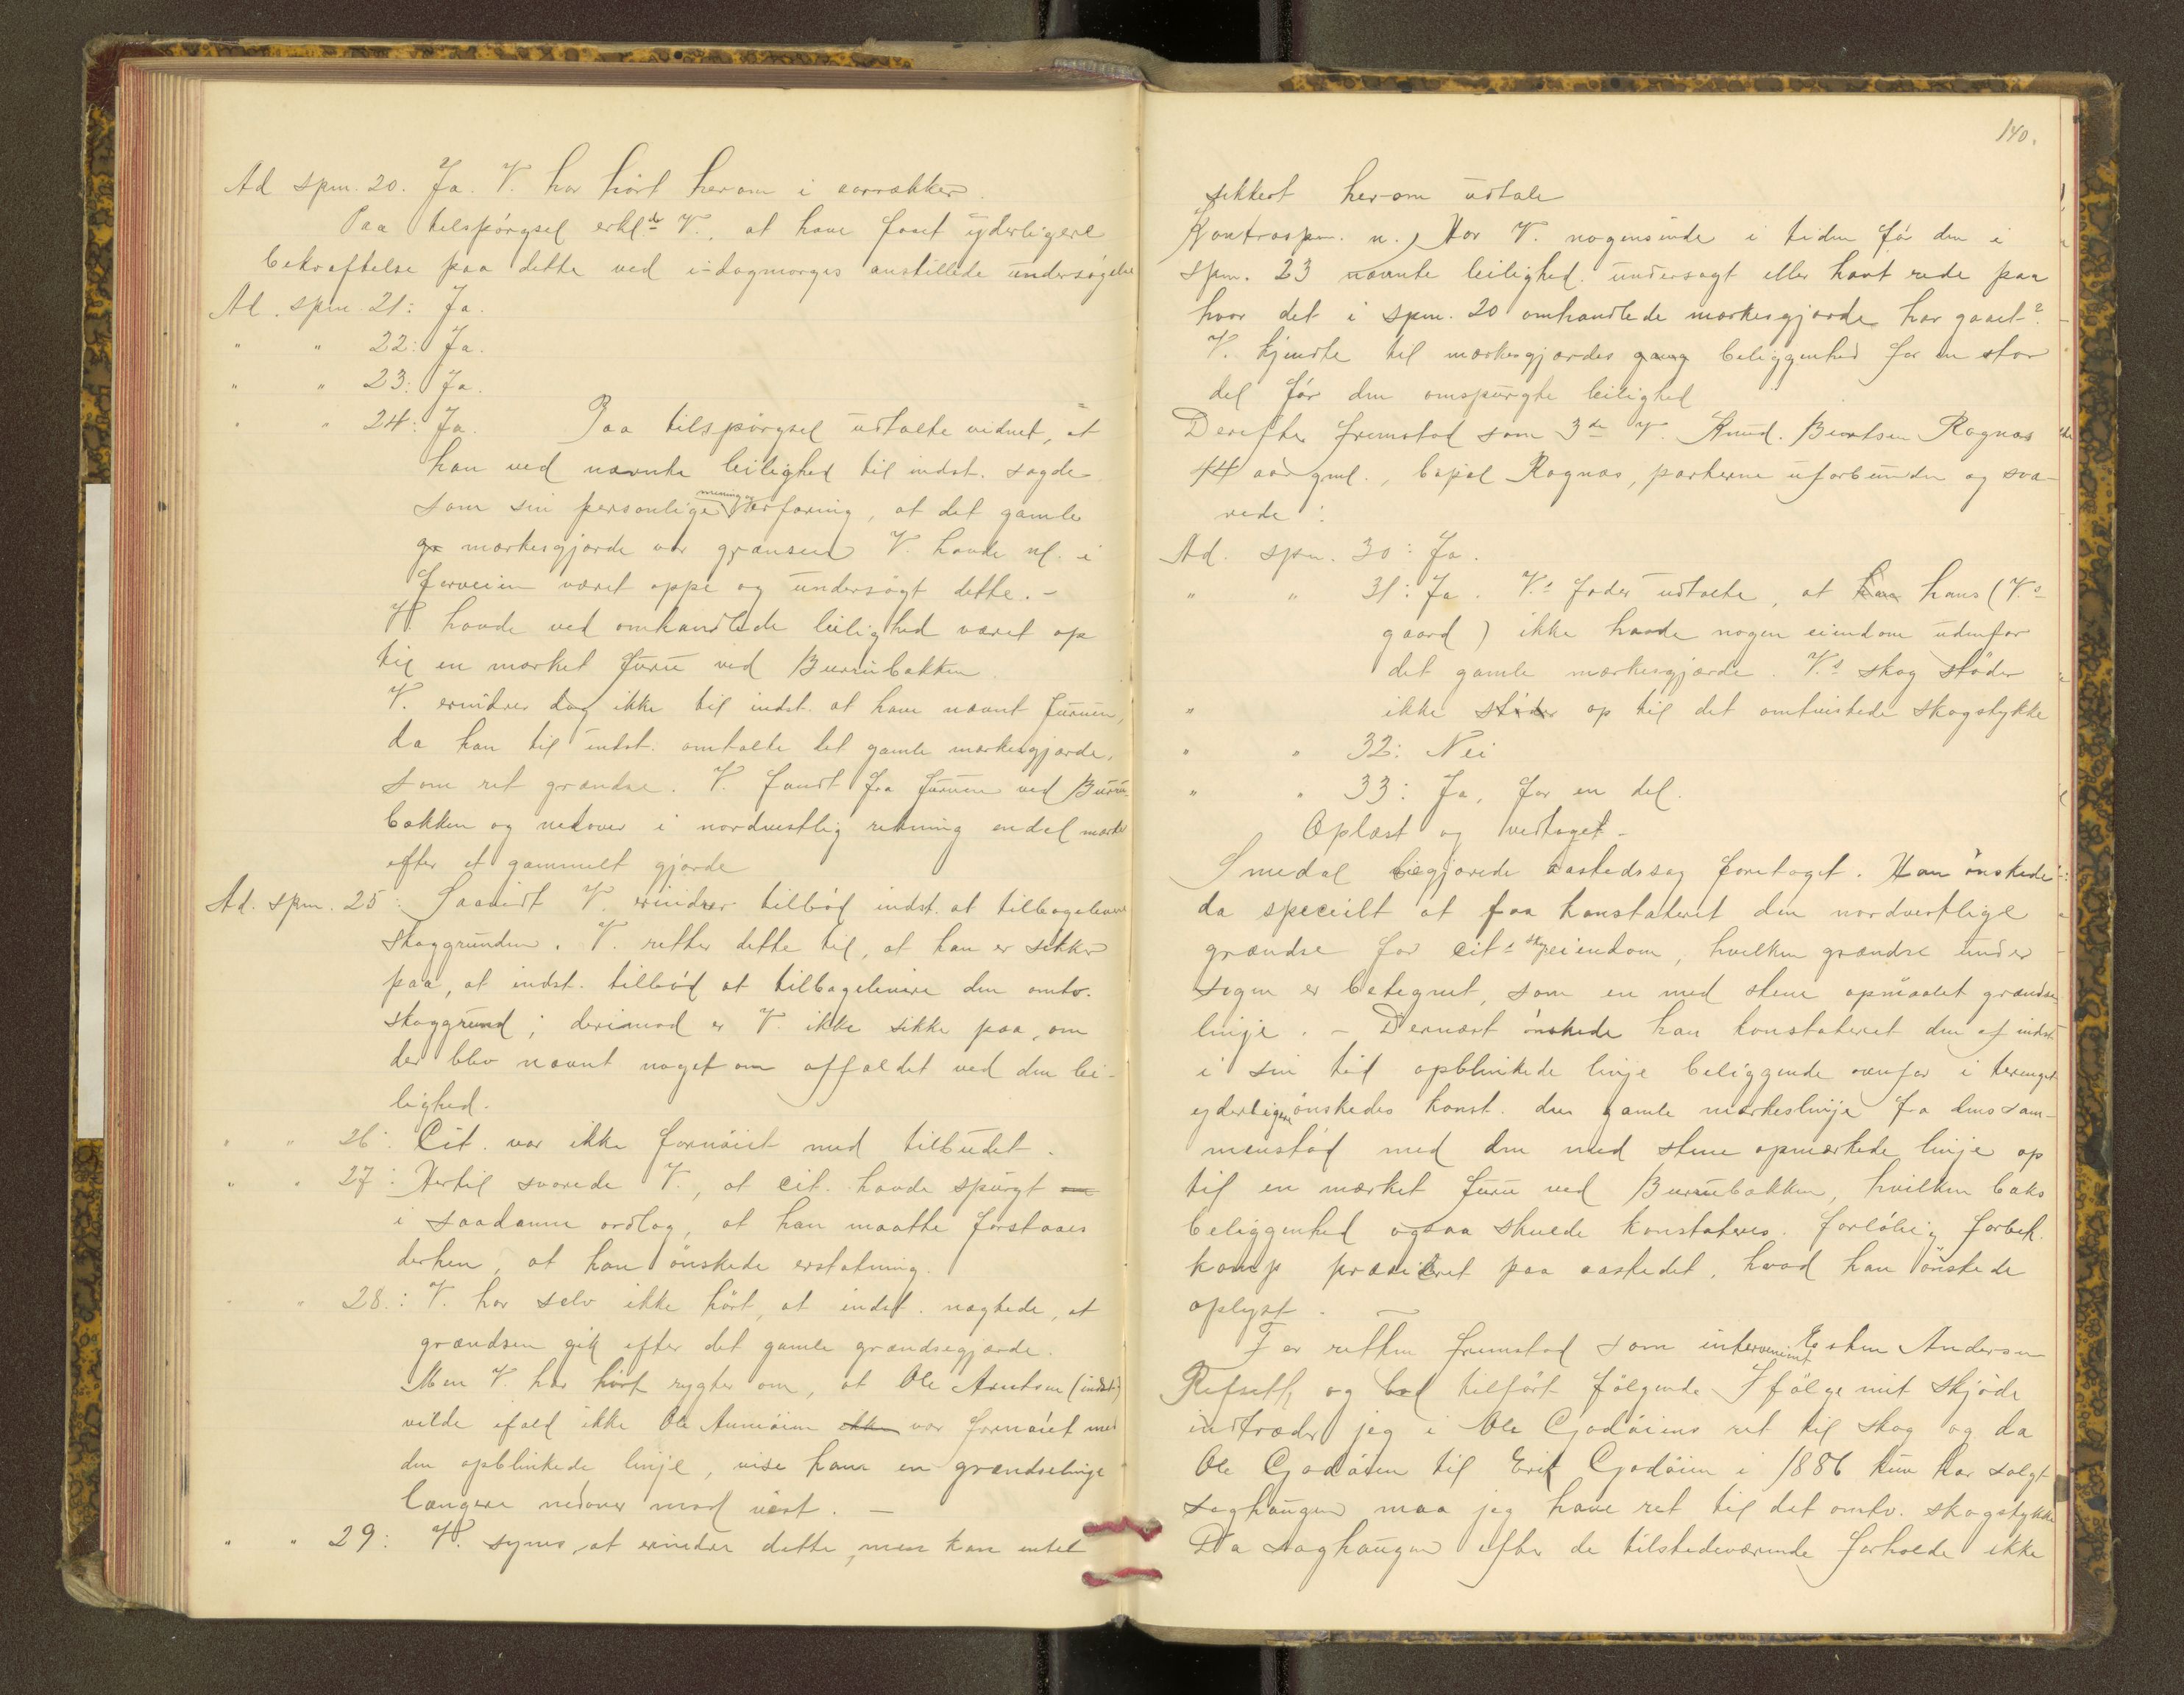 Ad spm. 20. Ja. V. har hørt herom i aarrækker.
Paa tilspørgsel erkl.de V., at have faaet yderligere
bekræftelse paa dette ved i-dagmorges anstillede undersøgelse
Ad. spm. 21: Ja.
" " 22: Ja.
" " 23: Ja.
" " 24: Ja. Paa tilspørgsel udtalte vidnet, at
han ved nævnte leilighed til indst. sagde
som sin personlige mening og erfaring, at det gamle
gr mærkesgjærde var grænsen V. havde nl. i
forveien været oppe og undersøgt dette. -
V. havde ved omhandlede leilighed været op
til en mærket furu ved Burrubakken.
V. erindrer dog ikke til indst. at have nævnt furuen,
da han til indst. omtalte det gamle mærkesgjærde,
som ret grændse. V. fandt fra furuen ved Burru-
bakken og nedover i nordvestlig retning endel mærker
efter et gammelt gjærde
Ad. spm. 25: Saavidt V. erindrer tilbød indst. at tilbagelevere
skoggrunden. V. retter dette til, at han er sikker
paa, at indst. tilbød at tilbagelevere den omtv.
skoggrund; derimod er V. ikke sikker paa, om
der blev nævnt noget om affaldet ved den lei-
lighed.
" " 26: Cit. var ikke fornøiet med tilbudet.
" " 27: Hertil svarede V., at cit. havde spurgt
i saadanne ordlag, at han maatte forstaaes
derhen, at han ønskede erstatning.
" " 28.: V. har selv ikke hørt, at indst. nægtede, at
grændsen gik efter det gamle grændsegjærde.
Men V. har hørt rygter om, at Ole Arntsen (indst.)
vilde ifald ikke Ole Aunøien ikke var fornøiet med
den opblinkede linje, vise ham en grændselinje
længere nedover mod vest. -
" " 29: V. synes at erindre dette, men kan intet
140.
sikkert herom udtale
Kontraspm. n.) Har V. nogensinde i tiden før den i
spm. 23 nævnte leilighed undersøgt eller havt rede paa
hvor det i spm. 20 omhandlede mærkesgjærde har gaaet?
V. kjendte til mærkesgjærdes gang beliggenhed for en stor
del før den omspurgte leilighed
Derefter fremstod som 3de V. Knud Berntsen Rognæs
44 aar gml., bopæl Rognæs, parterne uforbunden og sva-
rede:
Ad. spm. 30: Ja.
" " 31: Ja. V.s fader udtalte, at han hans (V.s
gaard) ikke havde nogen eiendom udenfor
det gamle mærkesgjærde. V.s skog støder
" ikke støder op til det omtvistede skogstykke
" " 32: Nei
" " 33: Ja, for en del.
Oplæst og vedtaget -
Smedal begjærede aastedssag foretaget. Han ønskede
da specielt at faa konstateret den nordvestlige
grændse for cit.s skogeiendom, hvilken grændse under
sagen er betegnet, som en med stene opmaalet grændse-
linje. - Dernæst ønskede han konstateret den af indst.
i sin tid opblinkede linje beliggende ovenfor i terrænget
yderligere ønskedes konst. den gamle mærkeslinje fra dens sam-
menstød med den med stene opmærkede linje op
til en mærket furu ved Burrubakken, hvilken baks
beliggenhed ogsaa skulde konstateres. Forløbig forbeh.
komp præciseret paa aastedet, hvad han ønskede
oplyst.
For retten fremstod som intervenient Esten Andersen
Refseth og bad tilført følgende Ifølge mit skjøde
indtræder jeg i Ole Gjødøiens ret til skog og da
Ole Gjødøien til Erik Gjødøien i 1886 kun har solgt
saghaugen maa jeg have ret til det omtv. skogstykke
Da saghaugen efter de tilstedeværende forholde ikke